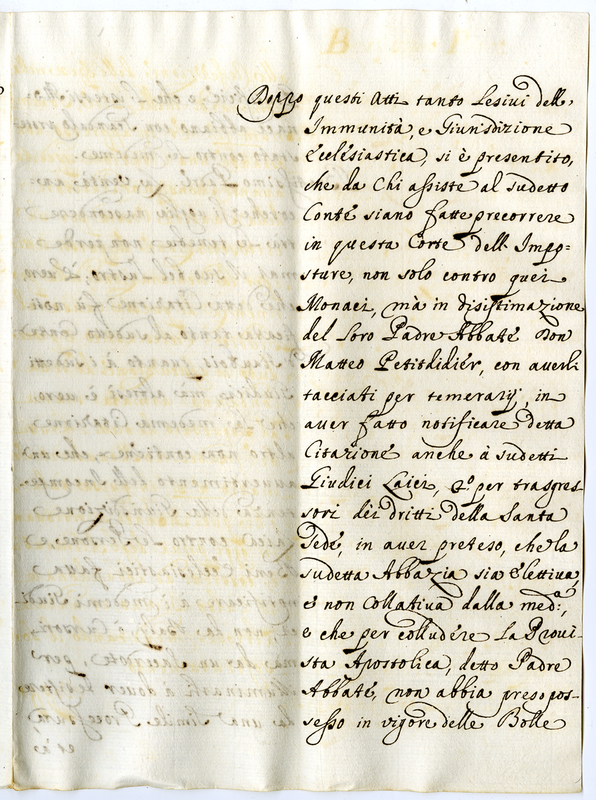 Doppo questi Atti tanto Lesivi dell'
Immunità, e Giurisdizione
Ecclesiastica, si è presentito,
che da chi assiste al sudetto
Conte siano fatte precorrere
in questa Corte dell' Impo=
sture, non solo contro quei
Monaci, mà in disistimazione
del Loro Padre Abbate Don
Matteo Petitdidiér, con averli
tacciati per temerarij, in
aver fatto notificare detta
Citazione anche à sudetti
Giudici Laici, 2.º per trasgres-
sori dei dritti della Santa
Sede, in aver preteso, che la
sudetta Abbazia sia elettiva,
e non Collativa dalla med.ª,
e che per colludere La Provi-
sta Apostolica, detto Padre
Abbate, non abbia preso pos-
sesso in vigore delle Bolle